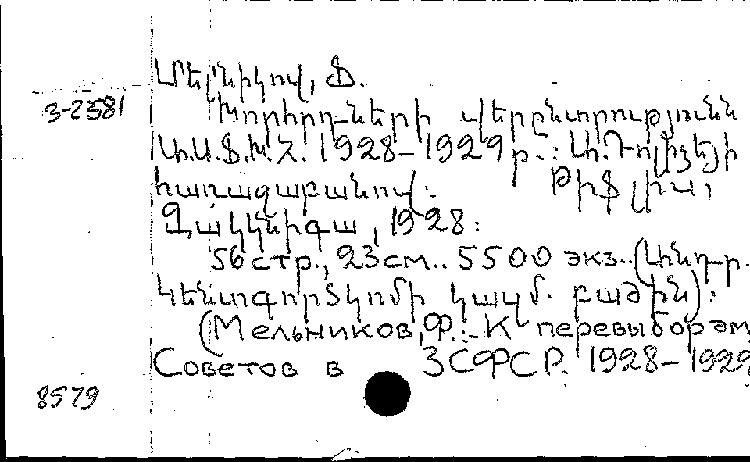 Մելնիկով, Ֆ.
3-2581
Խորհրդ-ների վերընտրությունն
Ա.Ս.Ֆ.Խ.Հ. 1928–1929 թ.:
հառաջաբանով: Թիֆլիս,
Զակկնիգա, 1928:
56 стр., 23 см.. 5500 экз.. (Անդր.
Կենտգործկոմի կազմ. բաժին):
(Мельников, Ф. К перевыборам
Советов в ЗСФСР. 1928–1929
8579